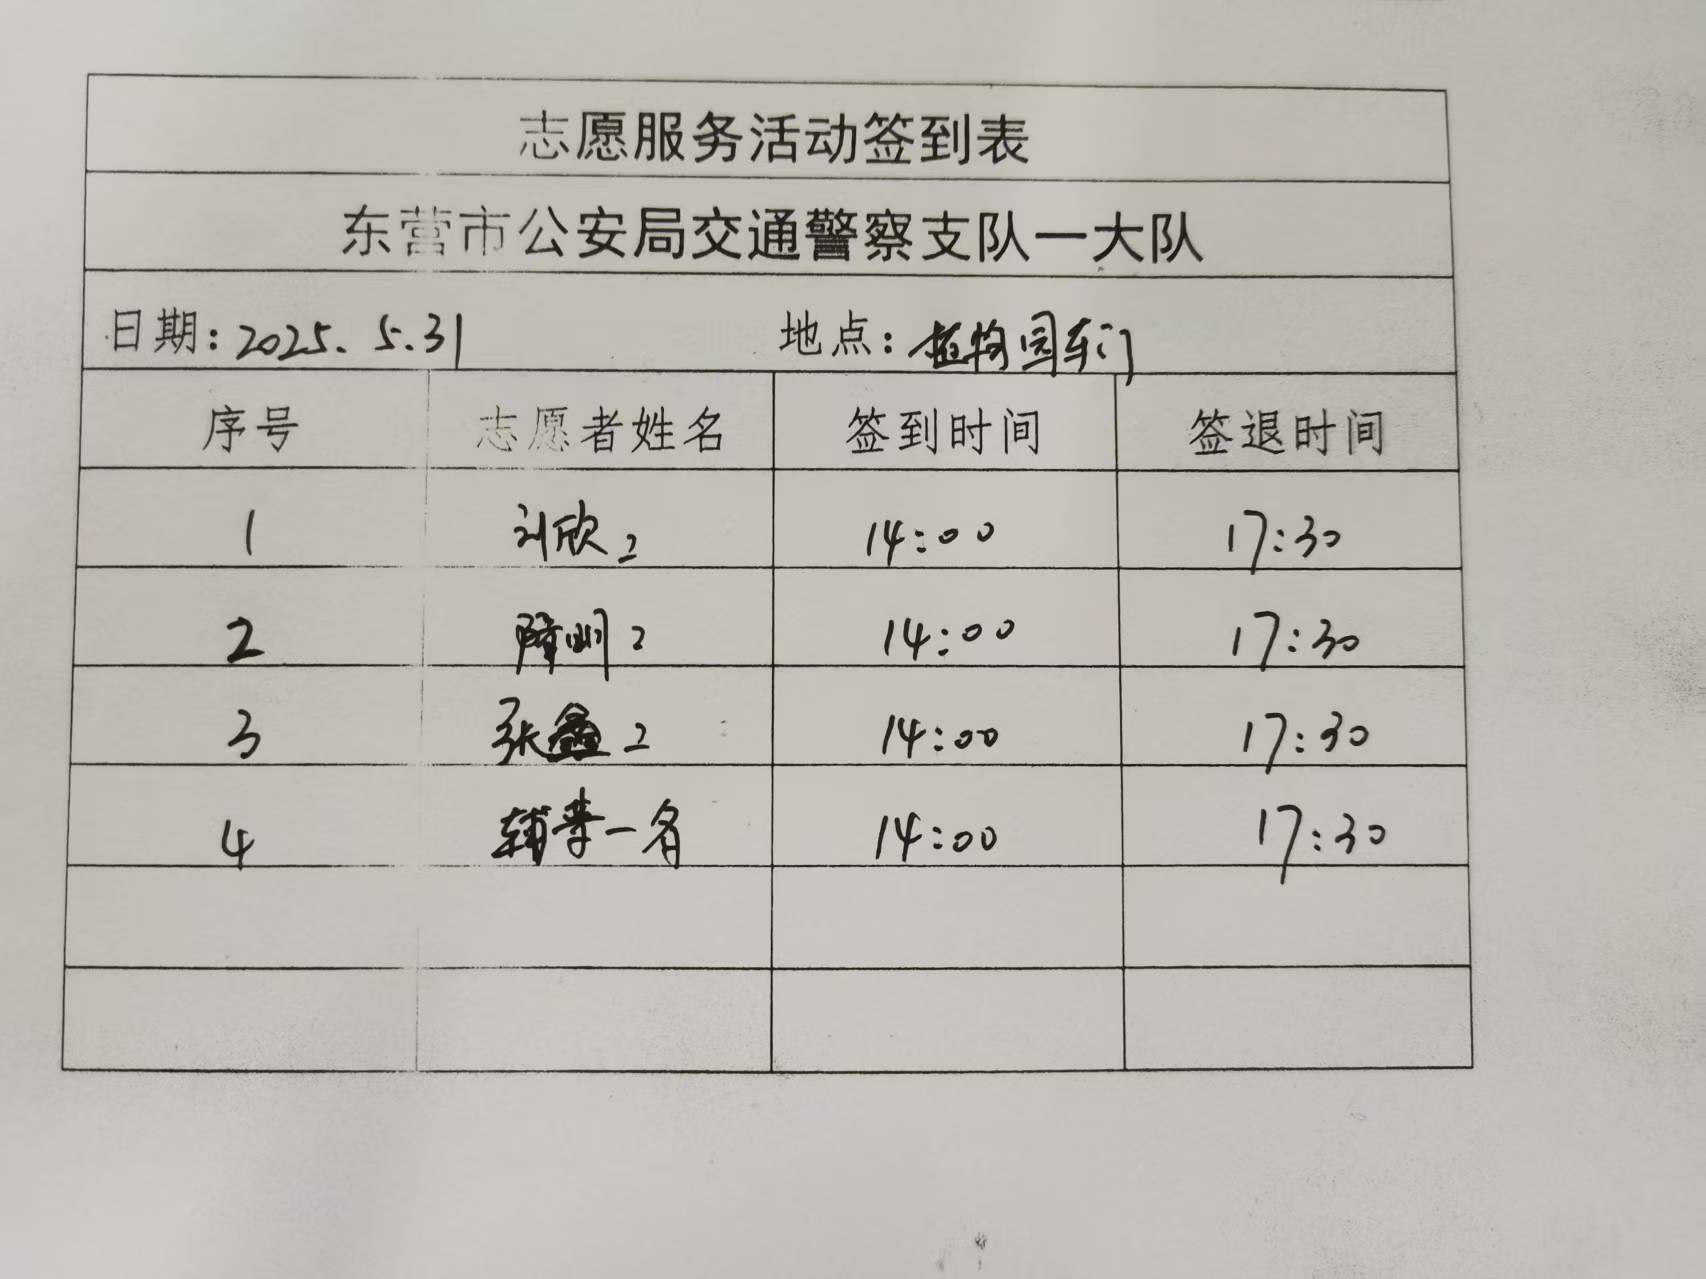 志愿服务活动签到表
东营市公安局交通警察支队一大队
日期：2025.5.31 地点：植物园东门
序号 志愿者姓名 签到时间 签退时间
1 刘欣2 14:00 17:30
2 2 14:00 17:30
3 张鑫2 14:00 17:30
4 辅警一名 14:00 17:30